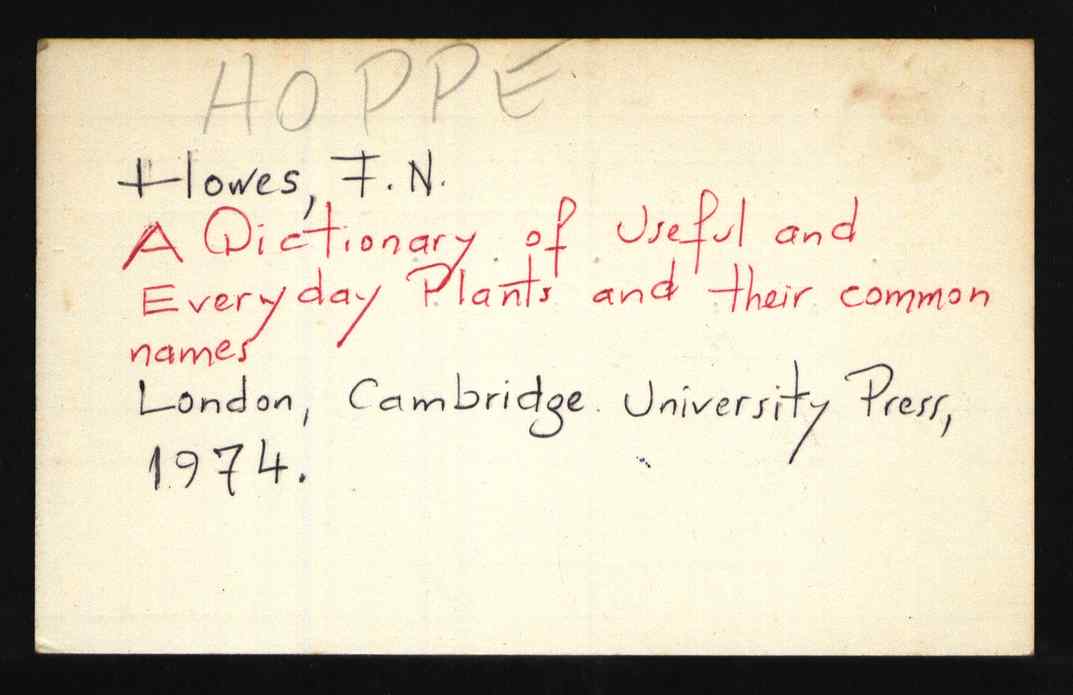 HOPPE
Howes, F.N.
A Dictionary of Useful and
Everyday Plants and their common
names
London, Cambridge University Press,
1974.